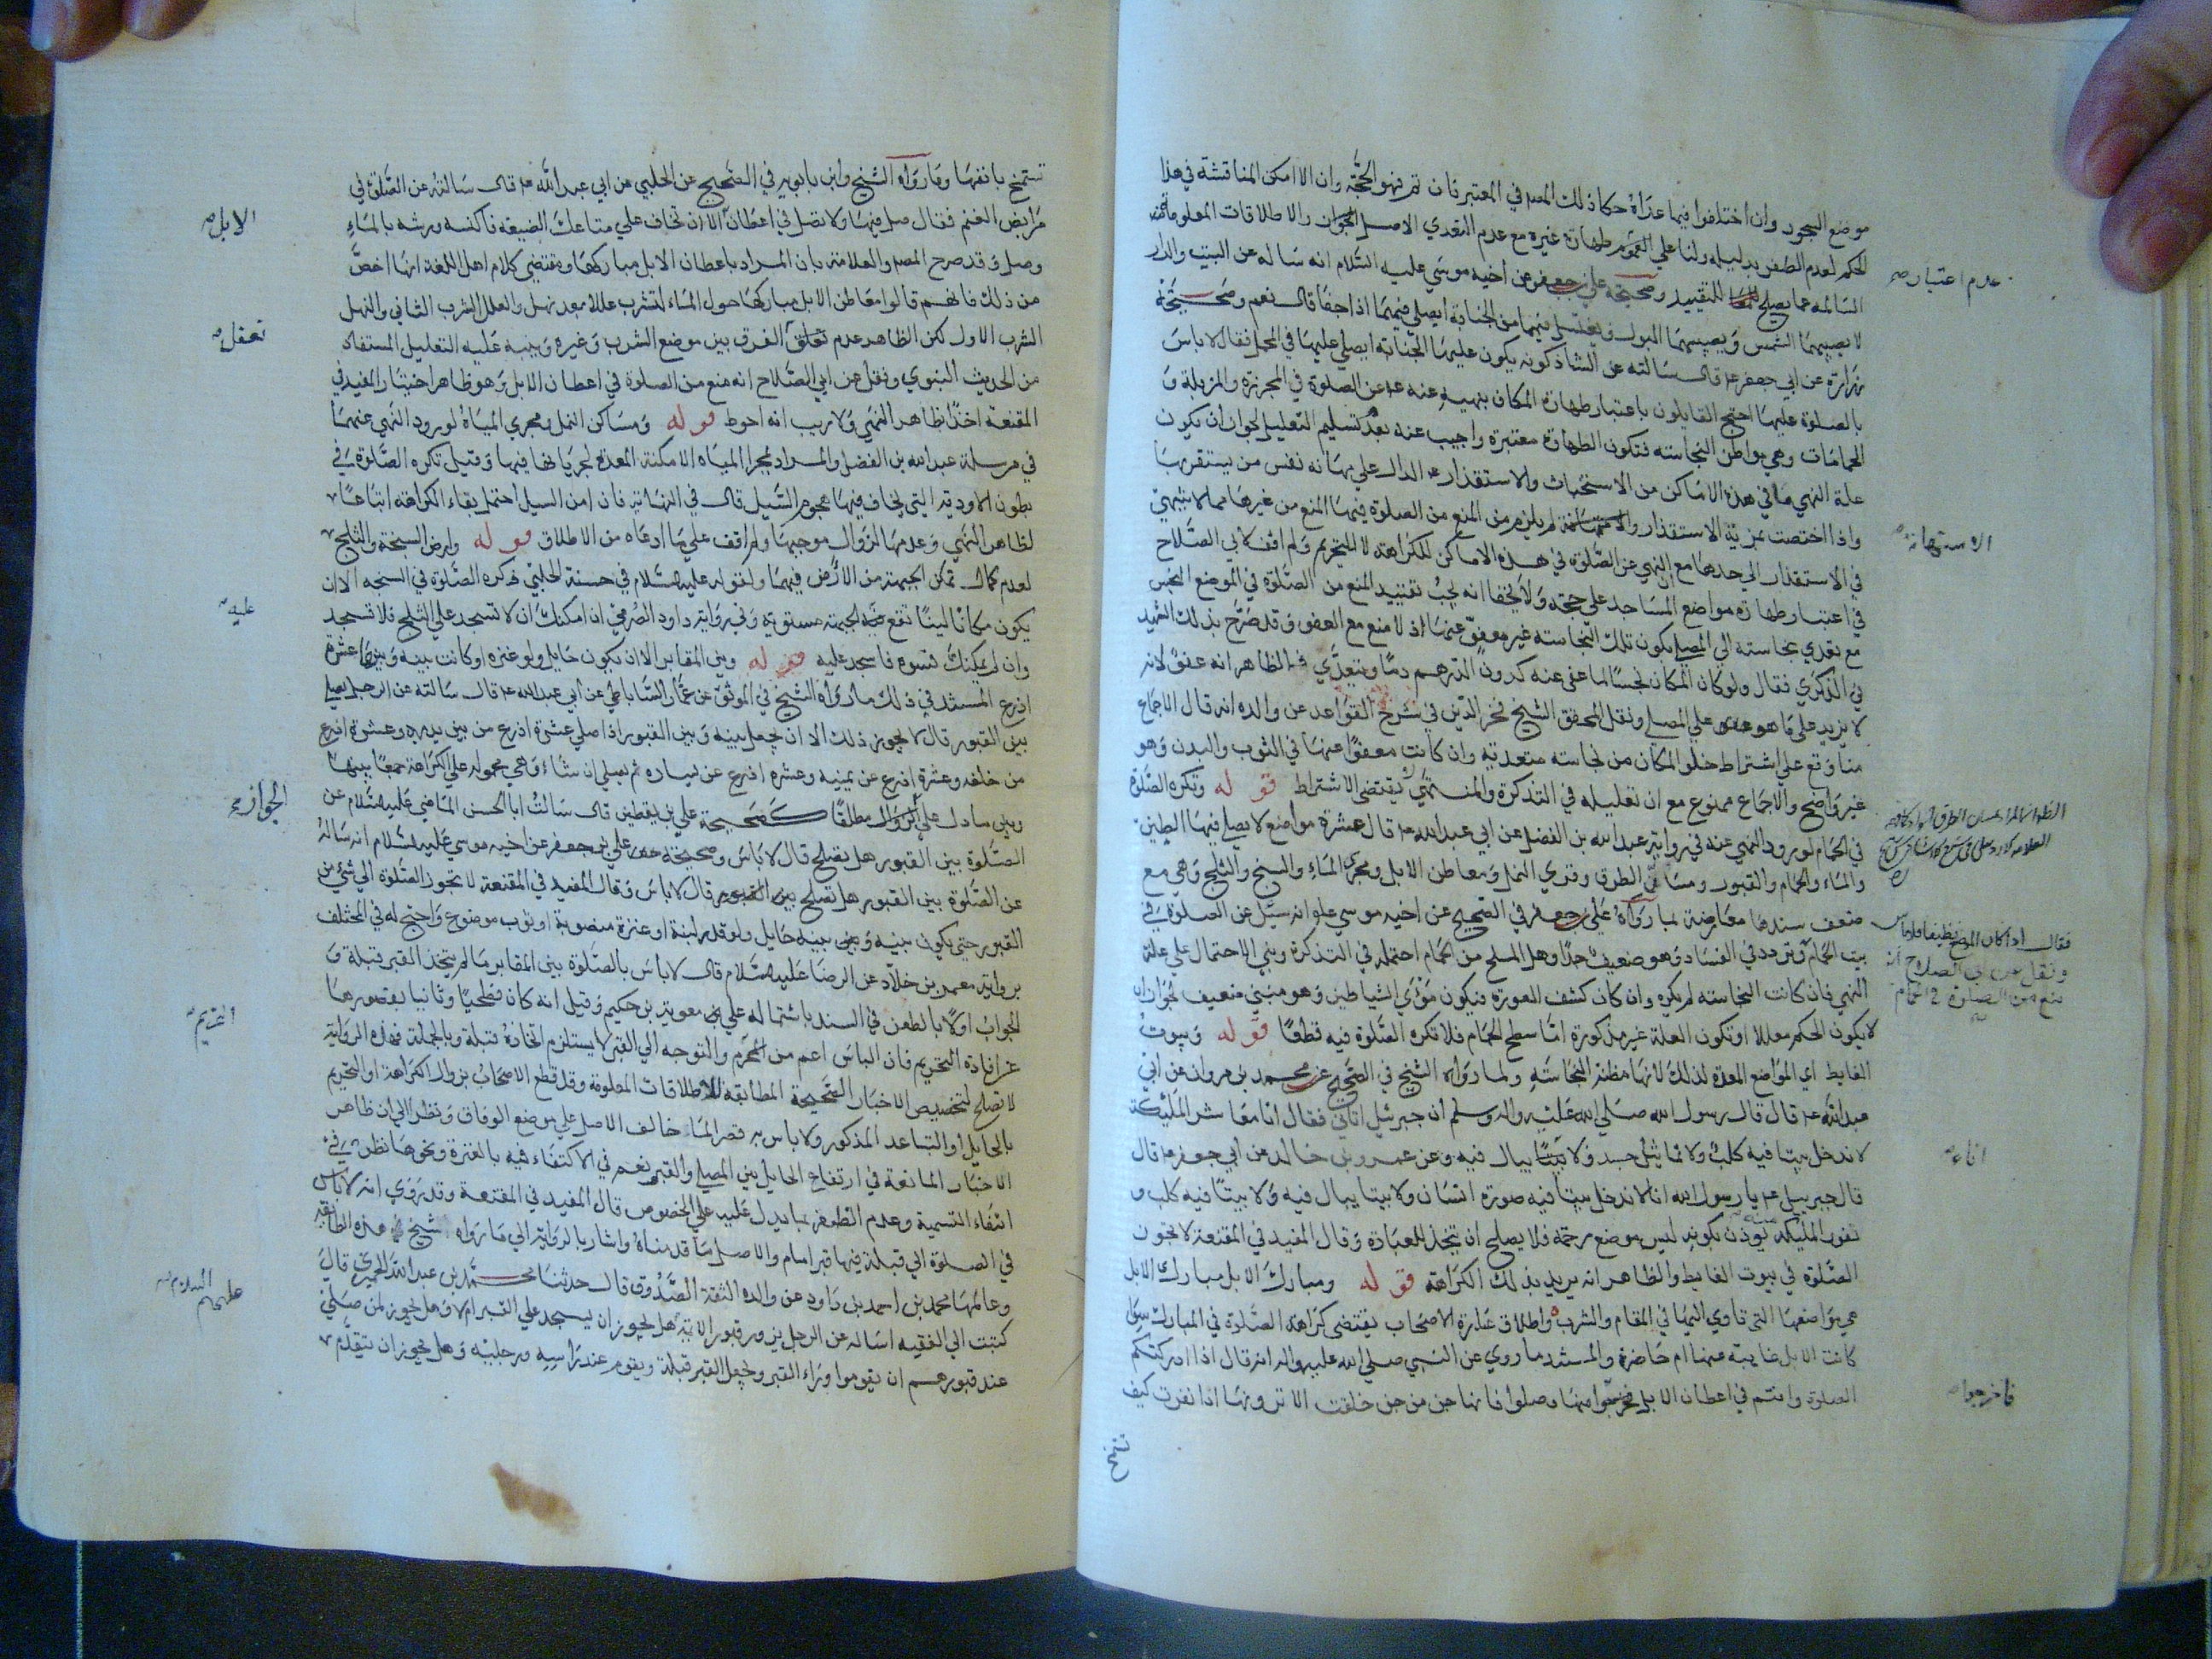 موضع السجود وان اختلفوا فيما عداه حكا ذلك المصه في المعتبر فان تم فهو الحجة وان الا امكن المناقشة في هذا
الحكم لعدم الظفر بدليله ولنا علي العموم طهارة غيره مع عدم التعدي الاصل الجواز والاطلاقات المعلومة
السالمه عما يصلح للتقييد وصحيحة علي بن جعفر عن اخيه موسي عليه السلام انه ساله عن البيت والدار
لا يصيبهما الشمس ويصيبهما البول ويغتسل فيهما من الجنابة ايصلي فيهما اذا جفا قال نعم وصحيحة
زرارة عن ابي جعفر عم قال سالته عن الشاذكونه يكون عليها الجنابة ايصلي عليها في المحمل فقال لا باس
بالصلوة عليها احتج القايلون باعتبار طهارة المكان بنهيه عنه عم عن الصلوة في المجزرة والمزبلة و
الحمامات وهي مواطن النجاسته فتكون الطهارة معتبرة واجيب عنه بعد تسليم التعليل لجواز ان يكون
علة النهي ما في هذة الاماكن من الاستخباث والاستقذار الدال علي مهانه نفس من يستقربها
واذا اختصت بمزية الاستقذار والاستهانة لم يلزم من المنع من الصلوة فيها المنع من غيرها مما لا ينتهي
في الاستقذار الي حدها مع ان النهي عن الصلوة في هذه الاماكن للكراهة لا للتحريم ولم اقف لابي الصلاح
في اعتبار طهارة مواضع المساجد علي حجة ولا يخفا انه يجب تقييد المنع من الصلوة في الموضع النجس
مع تعدي نجاسته الي المصلي بكون تلك النجاسته غير معفو عنها اذ لا منع مع العفو وقد صرح بذلك الشهيد
في الذكري فقال ولو كان المكان نجسا لما عفي عنه كدرون الدرهم دما ويتعدي فالظاهر انه عفو لانه
لا يزيد علي ما هو علي المصلي ونقل المحقق الشيخ فخر الدين في شرح القواعد عن والده انه قال الاجماع
منا وقع علي اشتراط خلو المكان من نجاسته متعدية وان كانت معفوا عنها في الثوب والبدن وهو
غير واضح والاجماع ممنوع مع ان تعليله في التذكرة والمنتهي يقتضي الاشتراط قوله وتكره الصلوة
في الحمام لورود النهي عنه في رواية عبد الله بن الفضل عن ابي عبد الله عم قال عشرة مواضع لا يصلي فيها الطين
والماء والحمام والقبور ومسان الطرق وقري النمل ومعاطن الابل ومجري الماء والسبخ والثلج وهي مع
ضعف سندها معارضة بما رواه علي بن جعفر في الصحيح عن اخيه موسي عم انه سئل عن الصلوة في
بيت الحمام وتردد في الفساد وهو ضعيف جدا وهل المسلخ من الحمام احتمله في التذكرة وبني الاحتمال علي علة
النهي فان كانت النجاسته لم يكره وان كان كشف العورة فيكون مؤي الشياطين وهو مبني ضعيف لجواز ان
لا يكون الحكم معللا او تكون العلة غير مذكورة اما سطح الحمام فلا تكره الصلوة فيه قطعا قوله وبيوت
الغايط اي المواضع المعدة لذلك لانها مظنة النجاسته ولما رواه الشيخ في الصحيح عن محمد بن مروان عن ابي
عبد الله عم قال قال رسول الله صلي الله عليه واله وسلم ان جبرئيل اتاني فقال انا معاشر المليكة
لا ندخل بيتا فيه كلب ولا تماثيل جسد ولا بيتا يبال فيه وعن عمرو بن خالد عن ابي جعفر عم قال
قال جبرييل عم يا رسول الله انا لا ندخل بيتا فيه صورة انسان ولا بيتا يبال فيه ولا بيتا فيه كلب و
نفور المليكه منه يوذن بكونه ليس موضع رحمة فلا يصلح ان يتخذ للعبادة وقال المفيد في المقنعة لا تجوز
الصلوة في بيوت الغايط والظاهر انه يريد بذلك الكراهة قوله ومبارك الابل مبارك الابل
هي مواضعها التي تاوي اليها في المقام والشرب واطلاق عبارة الاصحاب يقتضي كراهة الصلوة في المبارك سواء
كانت الابل غايبة عنها ام حاضرة والمستند ما روي عن النبي صلي الله عليه واله انه قال اذا ادركتكم
الصلوة وانتم في اعطان الابل فاخرجوا منها وصلوا فانها جن من جن خلقت الا ترونها اذا نفرت كيف
عدم اعتبار
الاستهانة
فقال اذا كان الموضع نظيفا فلا باس
ونقل عن ابي الصلاح انه
منع من الصلوة في الحمام
انا
فاخرجوا
تشمخ بانفها وما رواه الشيخ وابن بابويه في الصحيح عن الحلبي عن ابي عبد الله عم قال سالته عن الصلوة في
مرابض الغنم فقال صل فيها ولا تصل في اعطان الا ان تخاف علي متاعك الضيعه فاكنسه ورشه بالماء
وصل وقد صرح المصه والعلامة بان المراد باعطان الابل مباركها ومقتضي كلام اهل اللغة انها اخص
من ذلك فانهم قالوا معاطن الابل مباركها حول الماء لتشرب عللا بعد نهل والعلل الشرب الثاني والنهل
الشرب الاول لكن الظاهر عدم تعقل الفرق بين موضع الشرب وغيره وينبه عليه التعليل المستفاد
من الحديث النبوي ونقل عن ابي الصلاح انه منع من الصلوة في اعطان الابل وهو ظاهر اختيار المفيد في
المقنعة اخذا بظاهر النهي ولا ريب انه احوط قوله ومساكن النمل ومجري المياه لورود النهي عنهما
في مرسلة عبد الله بن الفضل والمراد بمجرا المياه الامكنة المعدة لجريانها فيها وقيل تكره الصلوة في
بطون الاودية التي يخاف فيها هجوم السيل قال في النهاية فان امن السيل احتمل بقاء الكراهة اتباعا
لظاهر النهي وعدمها لزوال موجبها ولم اقف علي ما ادعاه من الاطلاق قوله وارض السبخة والثلج
لعدم كمال تمكن الجبهة من الارض فيهما ولقوله عليه السلام في حسنة الحلبي وكره الصلوة في السبخه الا ان
يكون مكانا لينا تقع عليه الجبهة مستوية وفي رواية داود الصرمي ان امكنك ان لا تسجد علي الثلج فلا تسجد
وان لم يمكنك فسوه فاسجد عليه قوله وبين المقابر الا ان يكون حايل ولو عنزه او كانت بينه وبينها عشرة
اذرع المستند في ذلك ما رواه الشيخ في الموثق عن عمار الساباطي عن ابي عبد الله عم قال سالته عن الرجل يصلي
بين القبور قال لا يجوز ذلك الا ان يجعل بينه وبين القبور اذا صلي عشرة اذرع من بين يديه وعشرة اذرع
من خلفه وعشرة اذرع عن يمينه وعشره اذرع عن يساره ثم يصلي ان شاء وهي محمولة علي الكراهة جمعا بينها
وبين ما دل علي مطلقا كصحيحة علي بن يقطين قال سالت ابا الحسن الماضي عليه السلام عن
الصلوة بين القبور هل يصلح قال لا باس وصحيحة علي بن جعفر عن اخيه موسي عليه السلام انه ساله
عن الصلوة بين القبور هل تصلح قال لا باس وقال المفيد في المقنعة لا تجوز الصلوة الي شي من
القبور حتي يكون بينه وبينه حايل ولو قدر لبنة او عنزة منصوبة او ثوب موضوع واحتج له في المختلف
برواية معمر بن خلاد عن الرضا عليه السلام قال لا باس بالصلوة بين المقابر ما لم يتخذ القبر قبلة و
الجواب اولا بالطعن في السند باشتماله علي معوية بن حكيم وقيل انه كان فطحيا وثانيا بقصورها
عن افادة التحريم فان الباس اعم من المحرم والتوجه الي القبر لا يستلزم اتخاذه قبلة وبالجملة فهذه الرواية
لا تصلح لتخصيص الاخبار الصحيحة المطابقة للاطلاقات المعلومة وقد قطع الاصحاب بزوال الكراهة او التحريم
بالحايل او التباعد المذكور ولا باس به قصرا لما خالف الاصل علي موضع الوفاق ونظرا الي ان ظاهر
الاخبار المانعة في ارتفاع الحايل بين المصلي والقبر نعم في الاكتفاء فيه بالعنزة ونحوها نظر في
انتفاء التسمية وعدم الظفر بما يدل عليه علي الخصوص قال المفيد في المقنعة وقد روي انه لا باس
في الصلوة الي قبلة فيها قبر امام والاصل ما قدمناه واشار بالرواية الي ما رواه شيخ هذه الطايفة
وعالمها محمد بن احمد بن داود عن والده الثقة الصدوق قال حدثنا محمد بن عبد الله الحميري قال
كتبت الي الفقيه اساله عن الرجل يزور قبور الايمة هل يجوز ان يسجد علي القبر ام لا وهل يجوز لمن صلي
عند قبورهم ان يقوموا وراء القبر ويجعل القبر قبلة ويقوم عند راسه ورجليه وهل يجوز ان يتقدم
الابل
تعقل
عليه
الجواز
التحريم
عليهم السلام